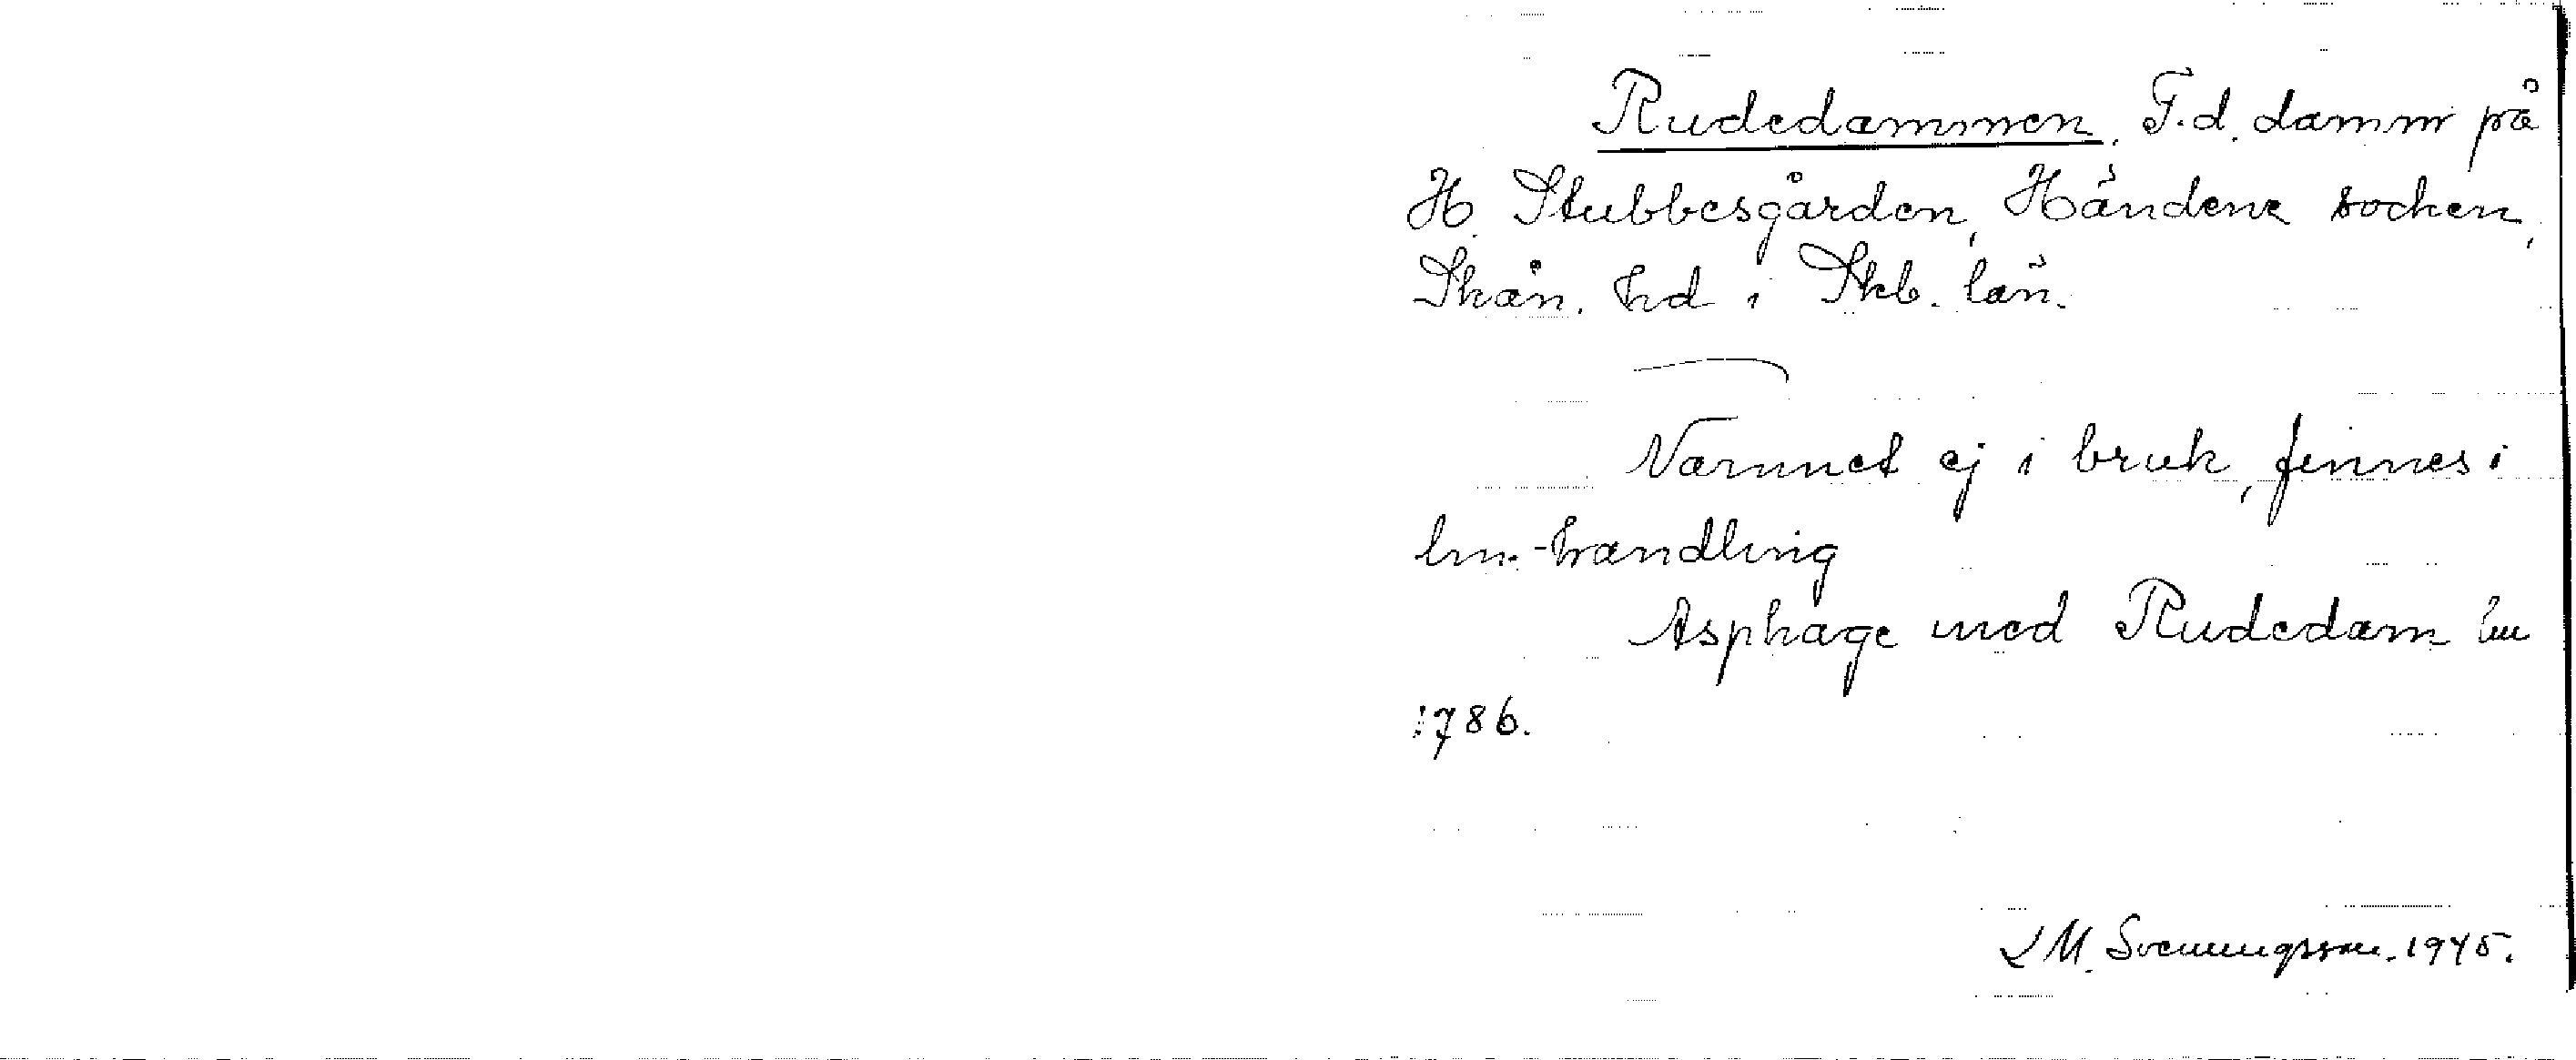 Rudedammen. F.d. damm på
H. Stubbesgården, Händene socken,
Skån. hd i Skb. län.
Namnet ej i bruk, finnes i
lm.-handling
Asphage med Rudedam lm
1786.
L M. Svenungsson. 1945.